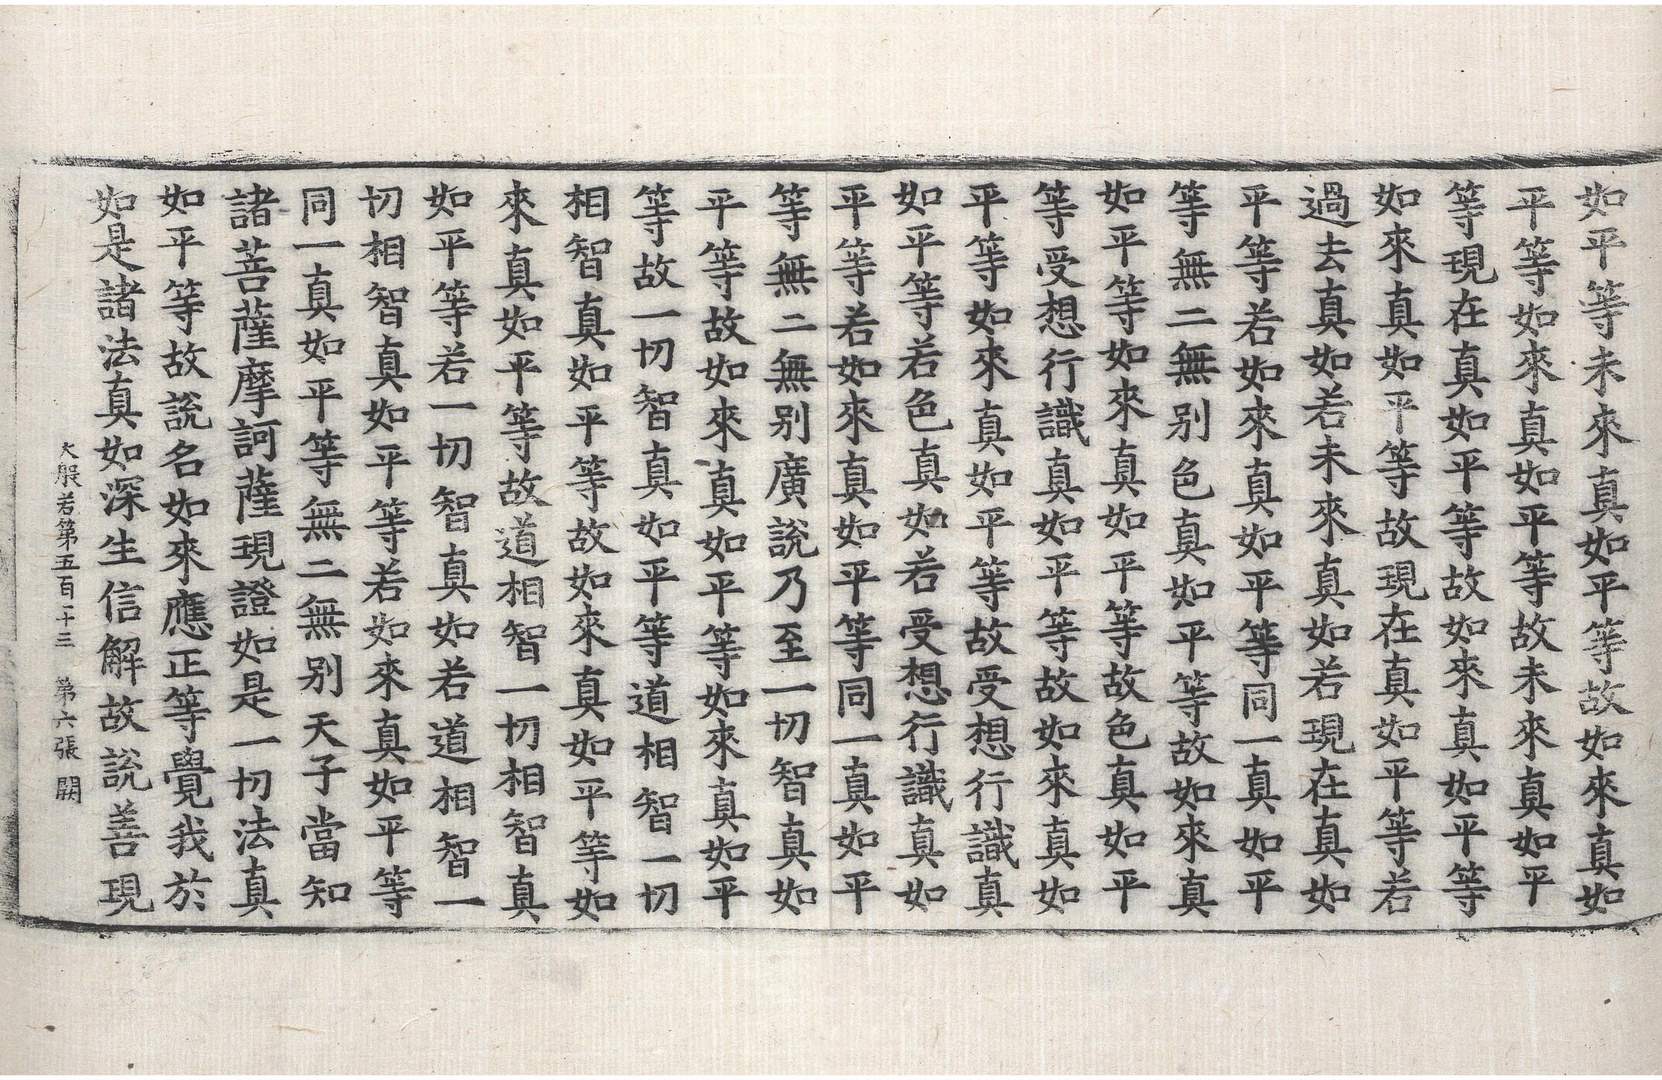 如平等未來真如平等故如來真如
平等如來真如平等故未來真如平
等現在真如平等故如來真如平等
如來真如平等故現在真如平等若
過去真如若未來真如若現在真如
平等若如來真如平等同一真如平
等無二無别色真如平等故如來真
如平等如來真如平等故色真如平
等受想行識真如平等故如來真如
平等如來真如平等故受想行識真
如平等若色真如若受想行識真如
平等若如來真如平等同一真如平
等無二無别廣說乃至一切智真如
平等故如來真如平等如來真如平
等故一切智真如平等道相智一切
相智真如平等故如來真如平等如
來真如平等故道相智一切相智真
如平等若一切智真如若道相智一
切相智真如平等若如來真如平等
同一真如平等無二無别天子當知
諸菩薩摩訶薩現證如是一切法真
如平等故說名如來應正等覺我於
如是諸法真如深生信解故說善現
大般若第五百十三 第六張 闕